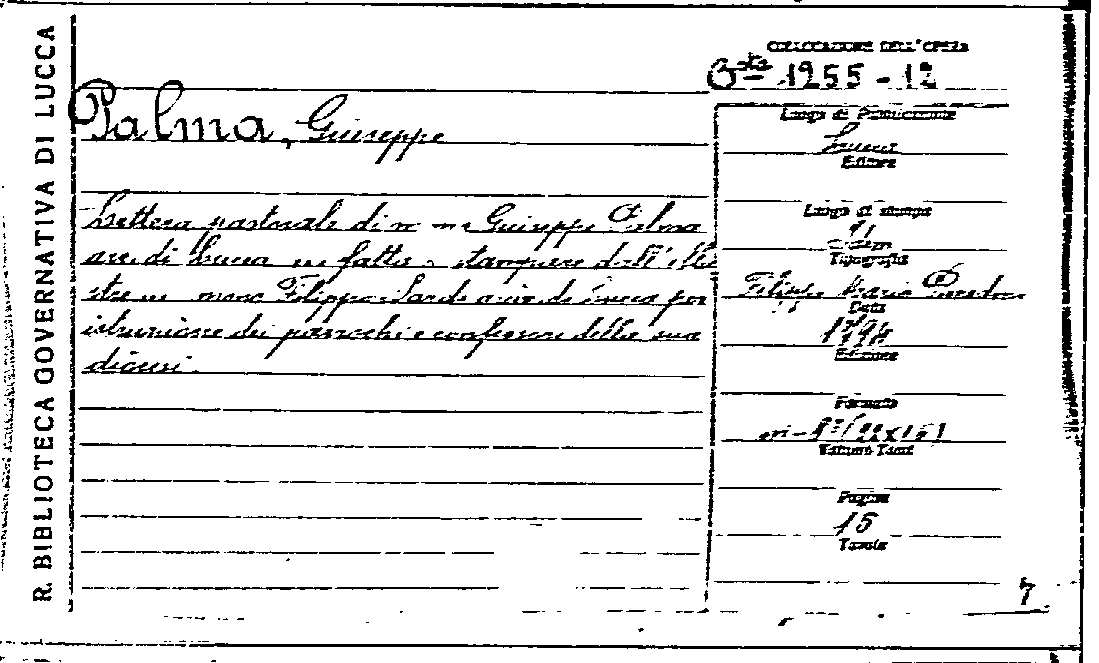 R. BIBLIOTECA GOVERNATIVA DI LUCCA
COLLOCAZIONE DELL'OPERA
Bta 1255-12
Palma, Giuseppe
Lettera pastorale di Giuseppe Palma
di Lucca fatta stampare dall'illu
stre Filippo Sardi di Lucca per
istruzione dei parrochi e confessori della sua
diocesi.
Luogo di Pubblicazione
Lucca
Editore
Luogo di stampa
Tipografia
Filippo Maria
Data
Edizione
Formato
in-8° (22x15)
Volumi Tomi
Pagine
15
Tavole
7